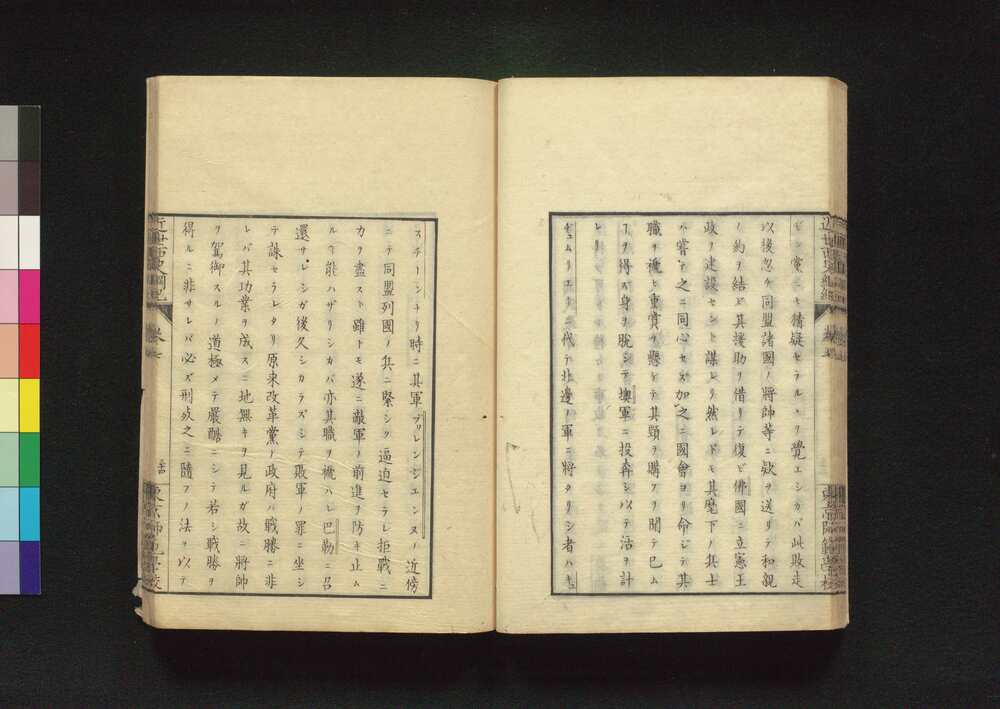 ビン黨ニモ猜疑セラルヽヲ覺エシカバ此敗走
以後忽ケ同盟諸國ノ將帥等ニ欵ヲ送リテ和親
ノ約ヲ結ビ其援助ヲ借リテ復ビ佛國ニ立憲王
政ヲ建設セント謀レリ然レドモ其麾下ノ兵士
ハ嘗テ之ニ同心セズ加之ニ國會ヨリ命ジテ其
職ヲ褫ヒ重賞ヲ懸ケテ其頸ヲ購フヲ聞テ已ム
ヲ得ズ身ヲ脫シテ墺軍ニ投奔シ以テ活ヲ計
レリ
ヂュムリエーニ代テ北邊ノ軍ニ將タリシ者ハキュ
スチーンナリ時ニ其軍ブァレンシエンヌノ近傍
ニテ同盟列國ノ兵ニ緊シク逼迫セラレ拒戰ニ
力ヲ盡スト雖トモ遂ニ敵軍ノ前進ヲ防ギ止ム
ルヿ能ハザリシカバ亦其職ヲ褫ハレ巴勒ニ召
還サレシガ後久シカラズシテ敗軍ノ罪ニ坐シ
テ誅セラレタリ原來改革黨ノ政府ハ戰勝ニ非
レバ其功業ヲ成スニ地無キヲ見ルガ故ニ將帥
ヲ駕御スルノ道極メテ嚴酷ニシテ若シ戰勝ヲ
得ルニ非サレバ必ズ刑死之ニ隨フノ法ヲ以テ
近世西史綱紀
卷七
東京師範學校